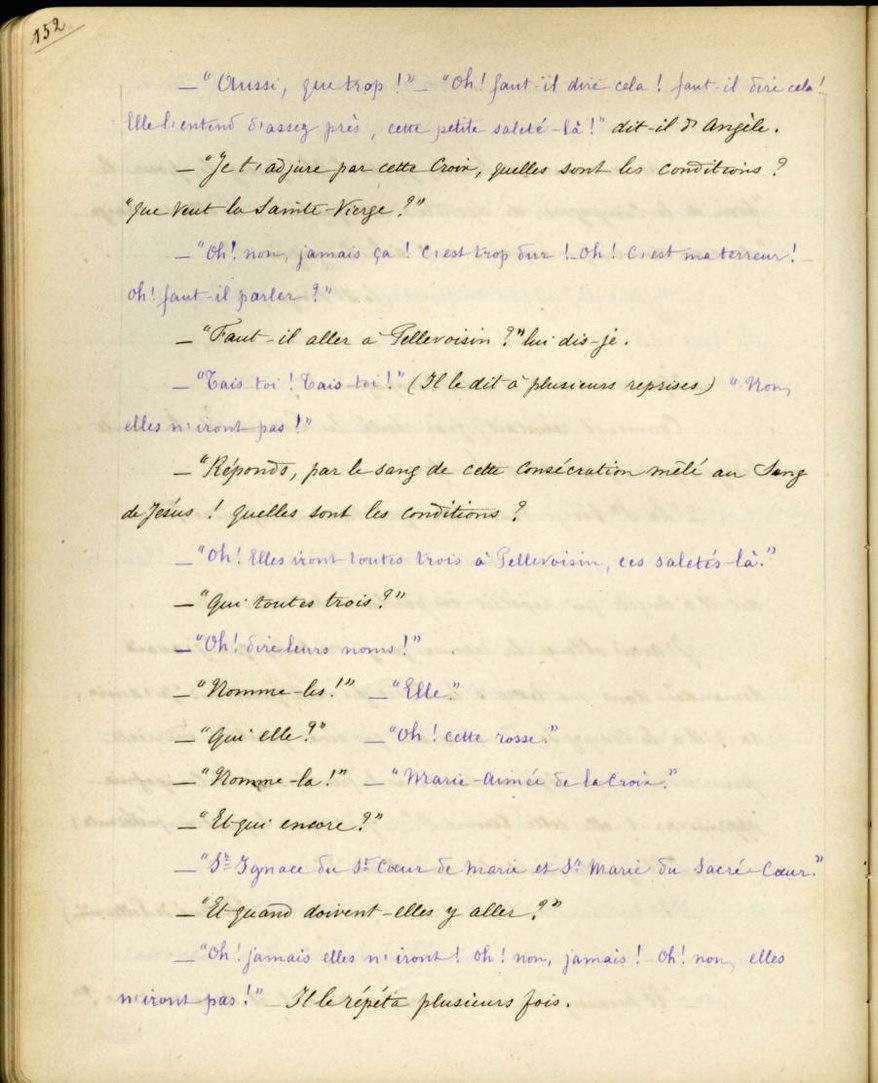 152
—"Aussi, que trop !"—"Oh! faut-il dire cela ! faut-il dire cela !
Elle l'entend d'assez près, cette petite saleté-là !" dit-il d'Angèle.
—"Je t'adjure par cette Croix, quelles sont les conditions ?
"que veut la Sainte-Vierge ?"
—"Oh! non, jamais ça ! C'est trop dur !—Oh ! C'est ma terreur!—
Oh! faut-il parler ?"
—"Faut-il aller à Pellevoisin ?" lui dis-je.
—"Tais-toi ! Tais-toi !" (Il le dit à plusieurs reprises) "Non,
elles n'iront pas !"
—"Réponds, par le sang de cette consécration mêlé au Sang
de Jésus ! quelles sont les conditions ?
—"Oh! Elles iront toutes trois à Pellevoisin, ces saletés-là."
—"Qui toutes trois ?"
—"Oh! dire leurs noms !"
—"Nomme-les!" —"Elle."
—"Qui elle ?" —"Oh ! cette rosse."
—"Nomme-la !" —"Marie-Aimée de la Croix."
—"Et qui encore ?"
—"Sr Ignace du St Cœur de Marie et Sr Marie du Sacré-Cœur."
—"Et quand doivent-elles y aller ?"
—"Oh! jamais elles n'iront ! Oh ! non, jamais !—Oh! non, elles
n'iront pas !"—Il le répéta plusieurs fois.